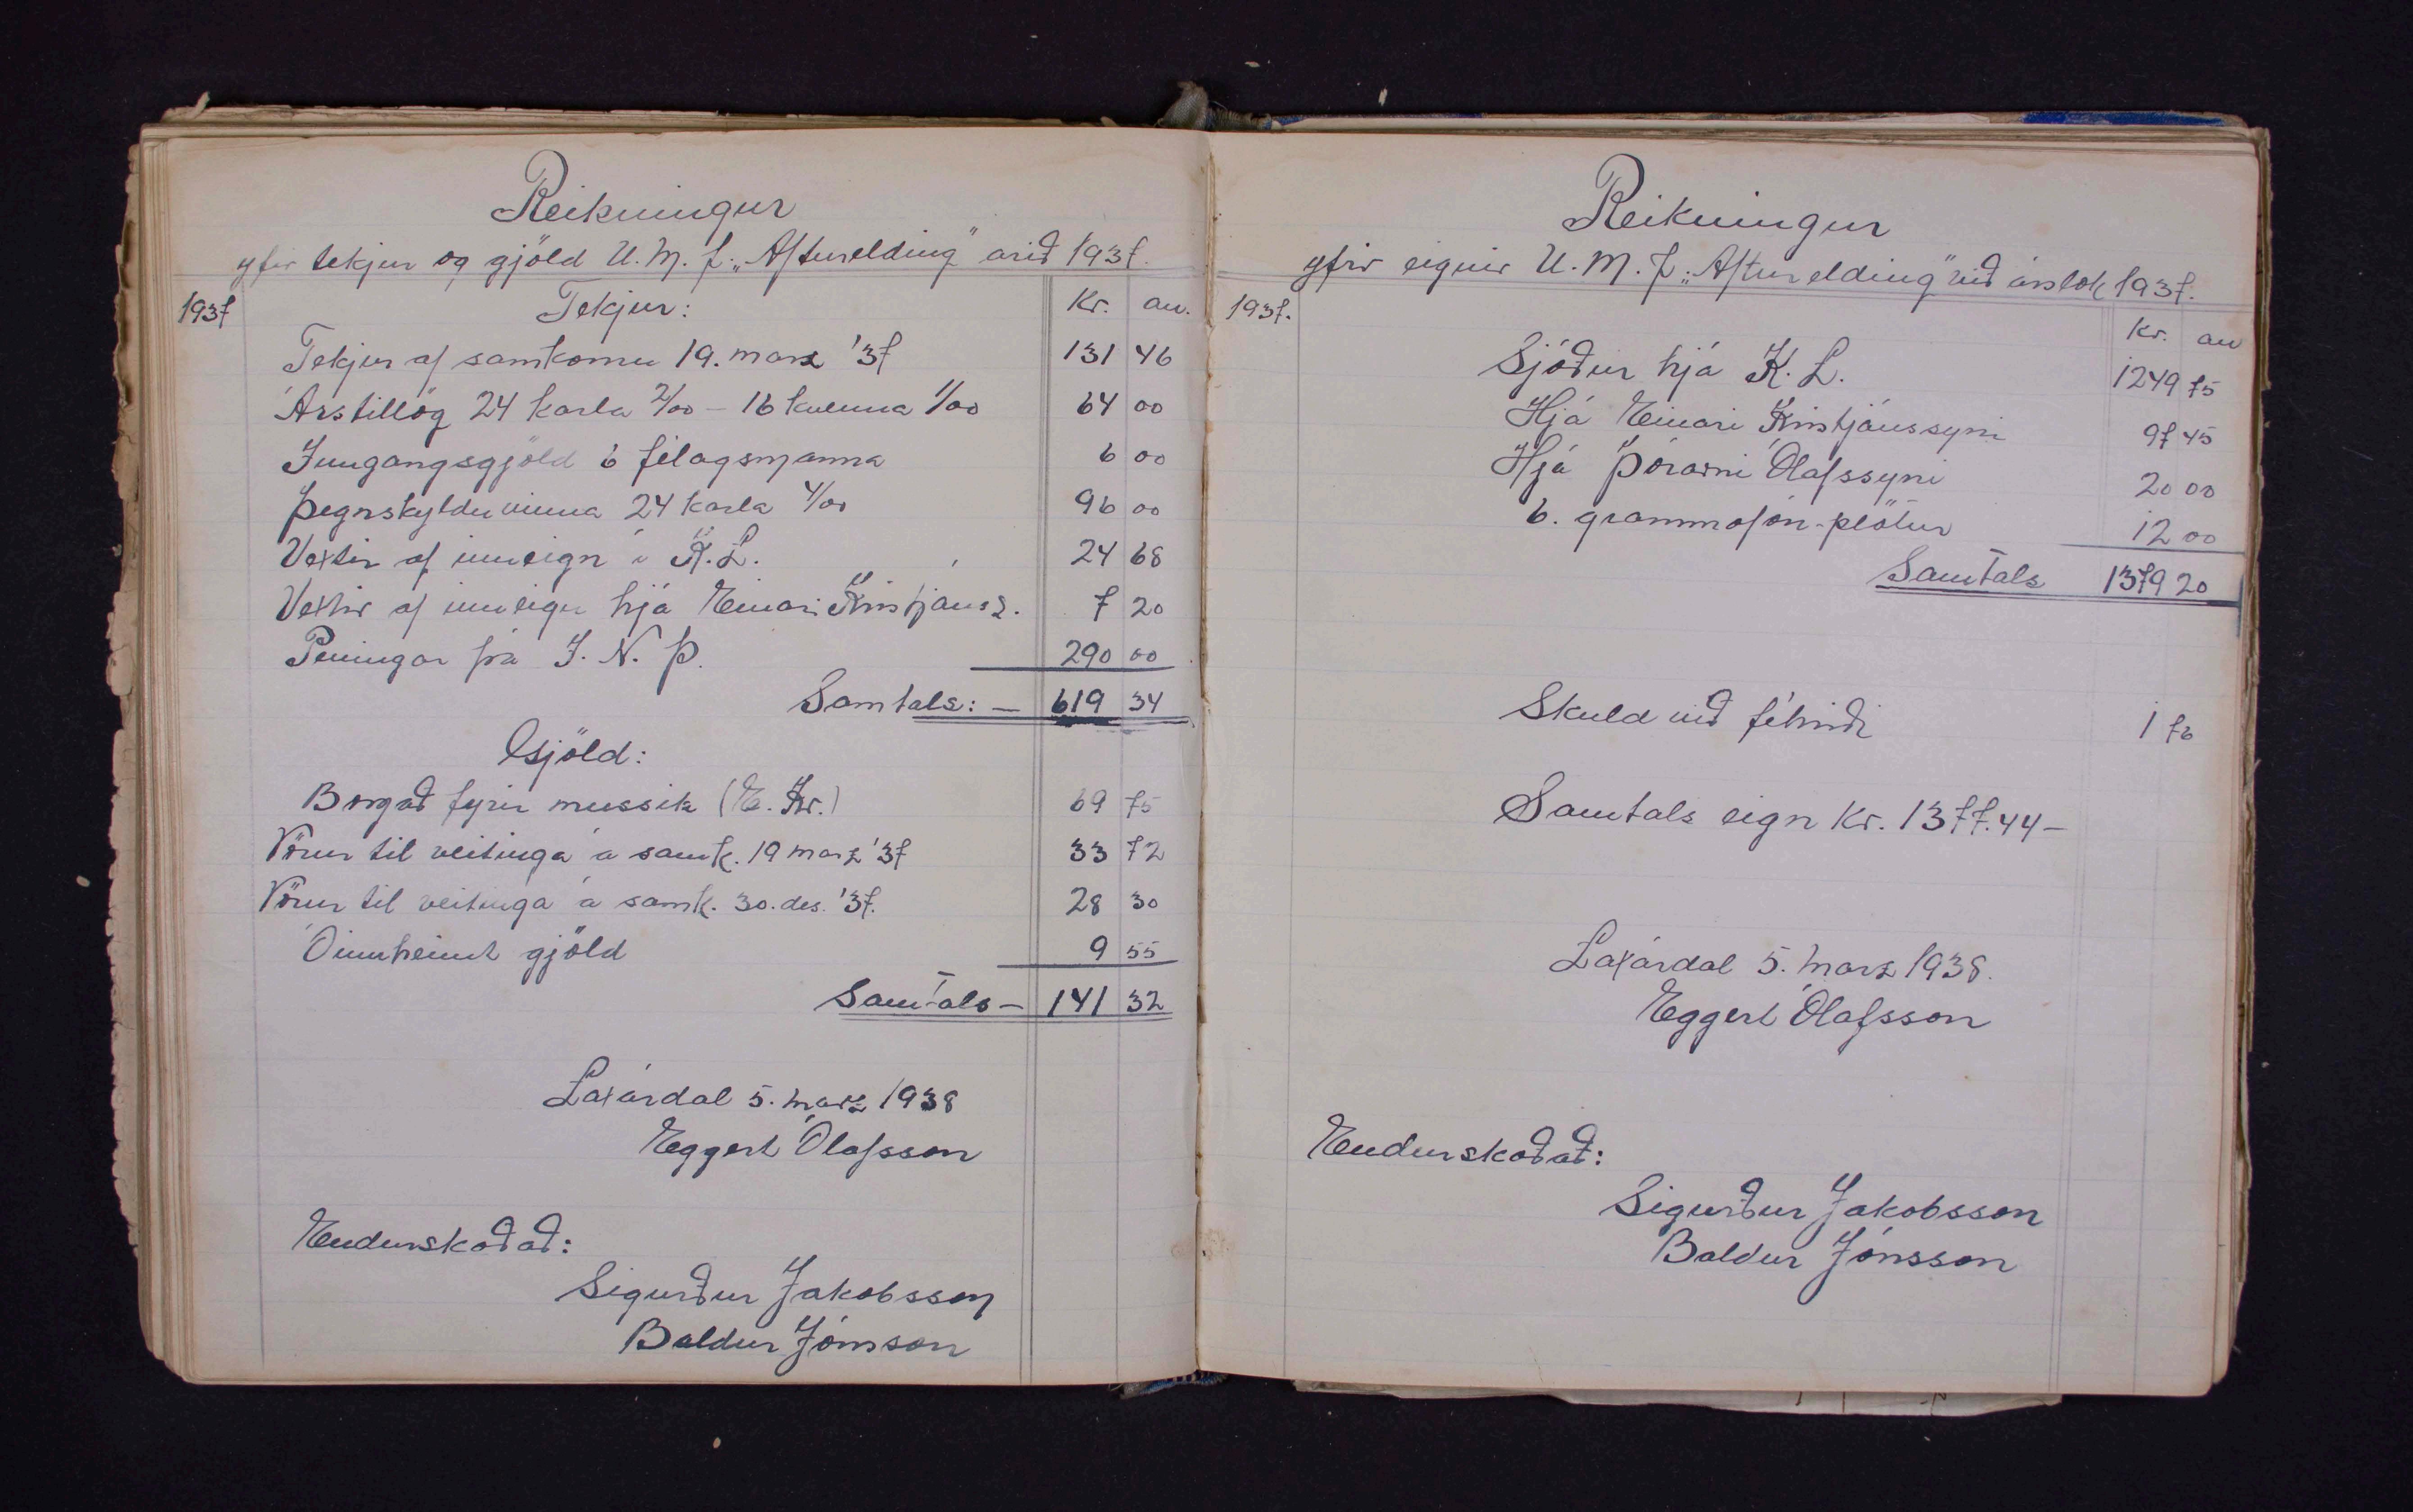 Reikningur
yfir tekjur og gjöld U.M.f. „Afturelding" árið 1937.
1937 Tekjur: Kr. au.
Tekjur af samkomu 19. marz '37 131 46
Árstillög 24 karla 2/00 – 16 kvenna 1/00 64 00
Inngangsgjöld 6 félagsmanna 6 00
Þegnskylduvinna 24 karla 4/00 96 00
Vextir af inneign í K.L. 24 68
Vextir af inneign hjá Einari Kristjánss. 7 20
Peningar frá J. N. Þ. 290 00
Samtals: – 619 34
Gjöld:
Borgað fyrir mussik (E. Kr.) 69 75
Vörur til veitinga á samk. 19 marz '37 33 72
Vörur til veitinga á samk. 30. des. '37. 28 30
Óinnheimt gjöld 9 55
Samtals – 141 32
Laxárdal 5. marz 1938
Eggert Ólafsson
Endurskoðað:
Sigurður Jakobsson
Baldur Jónsson
Reikningur
yfir eignir U.M.f. „Afturelding" við árslok 1937.
1937. Kr. au
Sjóður hjá K.L. 1249 75
Hjá Einari Kristjánssyni 97 45
Hjá Þórarni Ólafssyni 20 00
6. grammofón-plötur 12 00
Samtals 1379 20
Skuld við féhirði 1 76
Samtals eign Kr. 1377.44 –
Laxárdal 5. marz 1938.
Eggert Ólafsson
Endurskoðað:
Sigurður Jakobsson
Baldur Jónsson